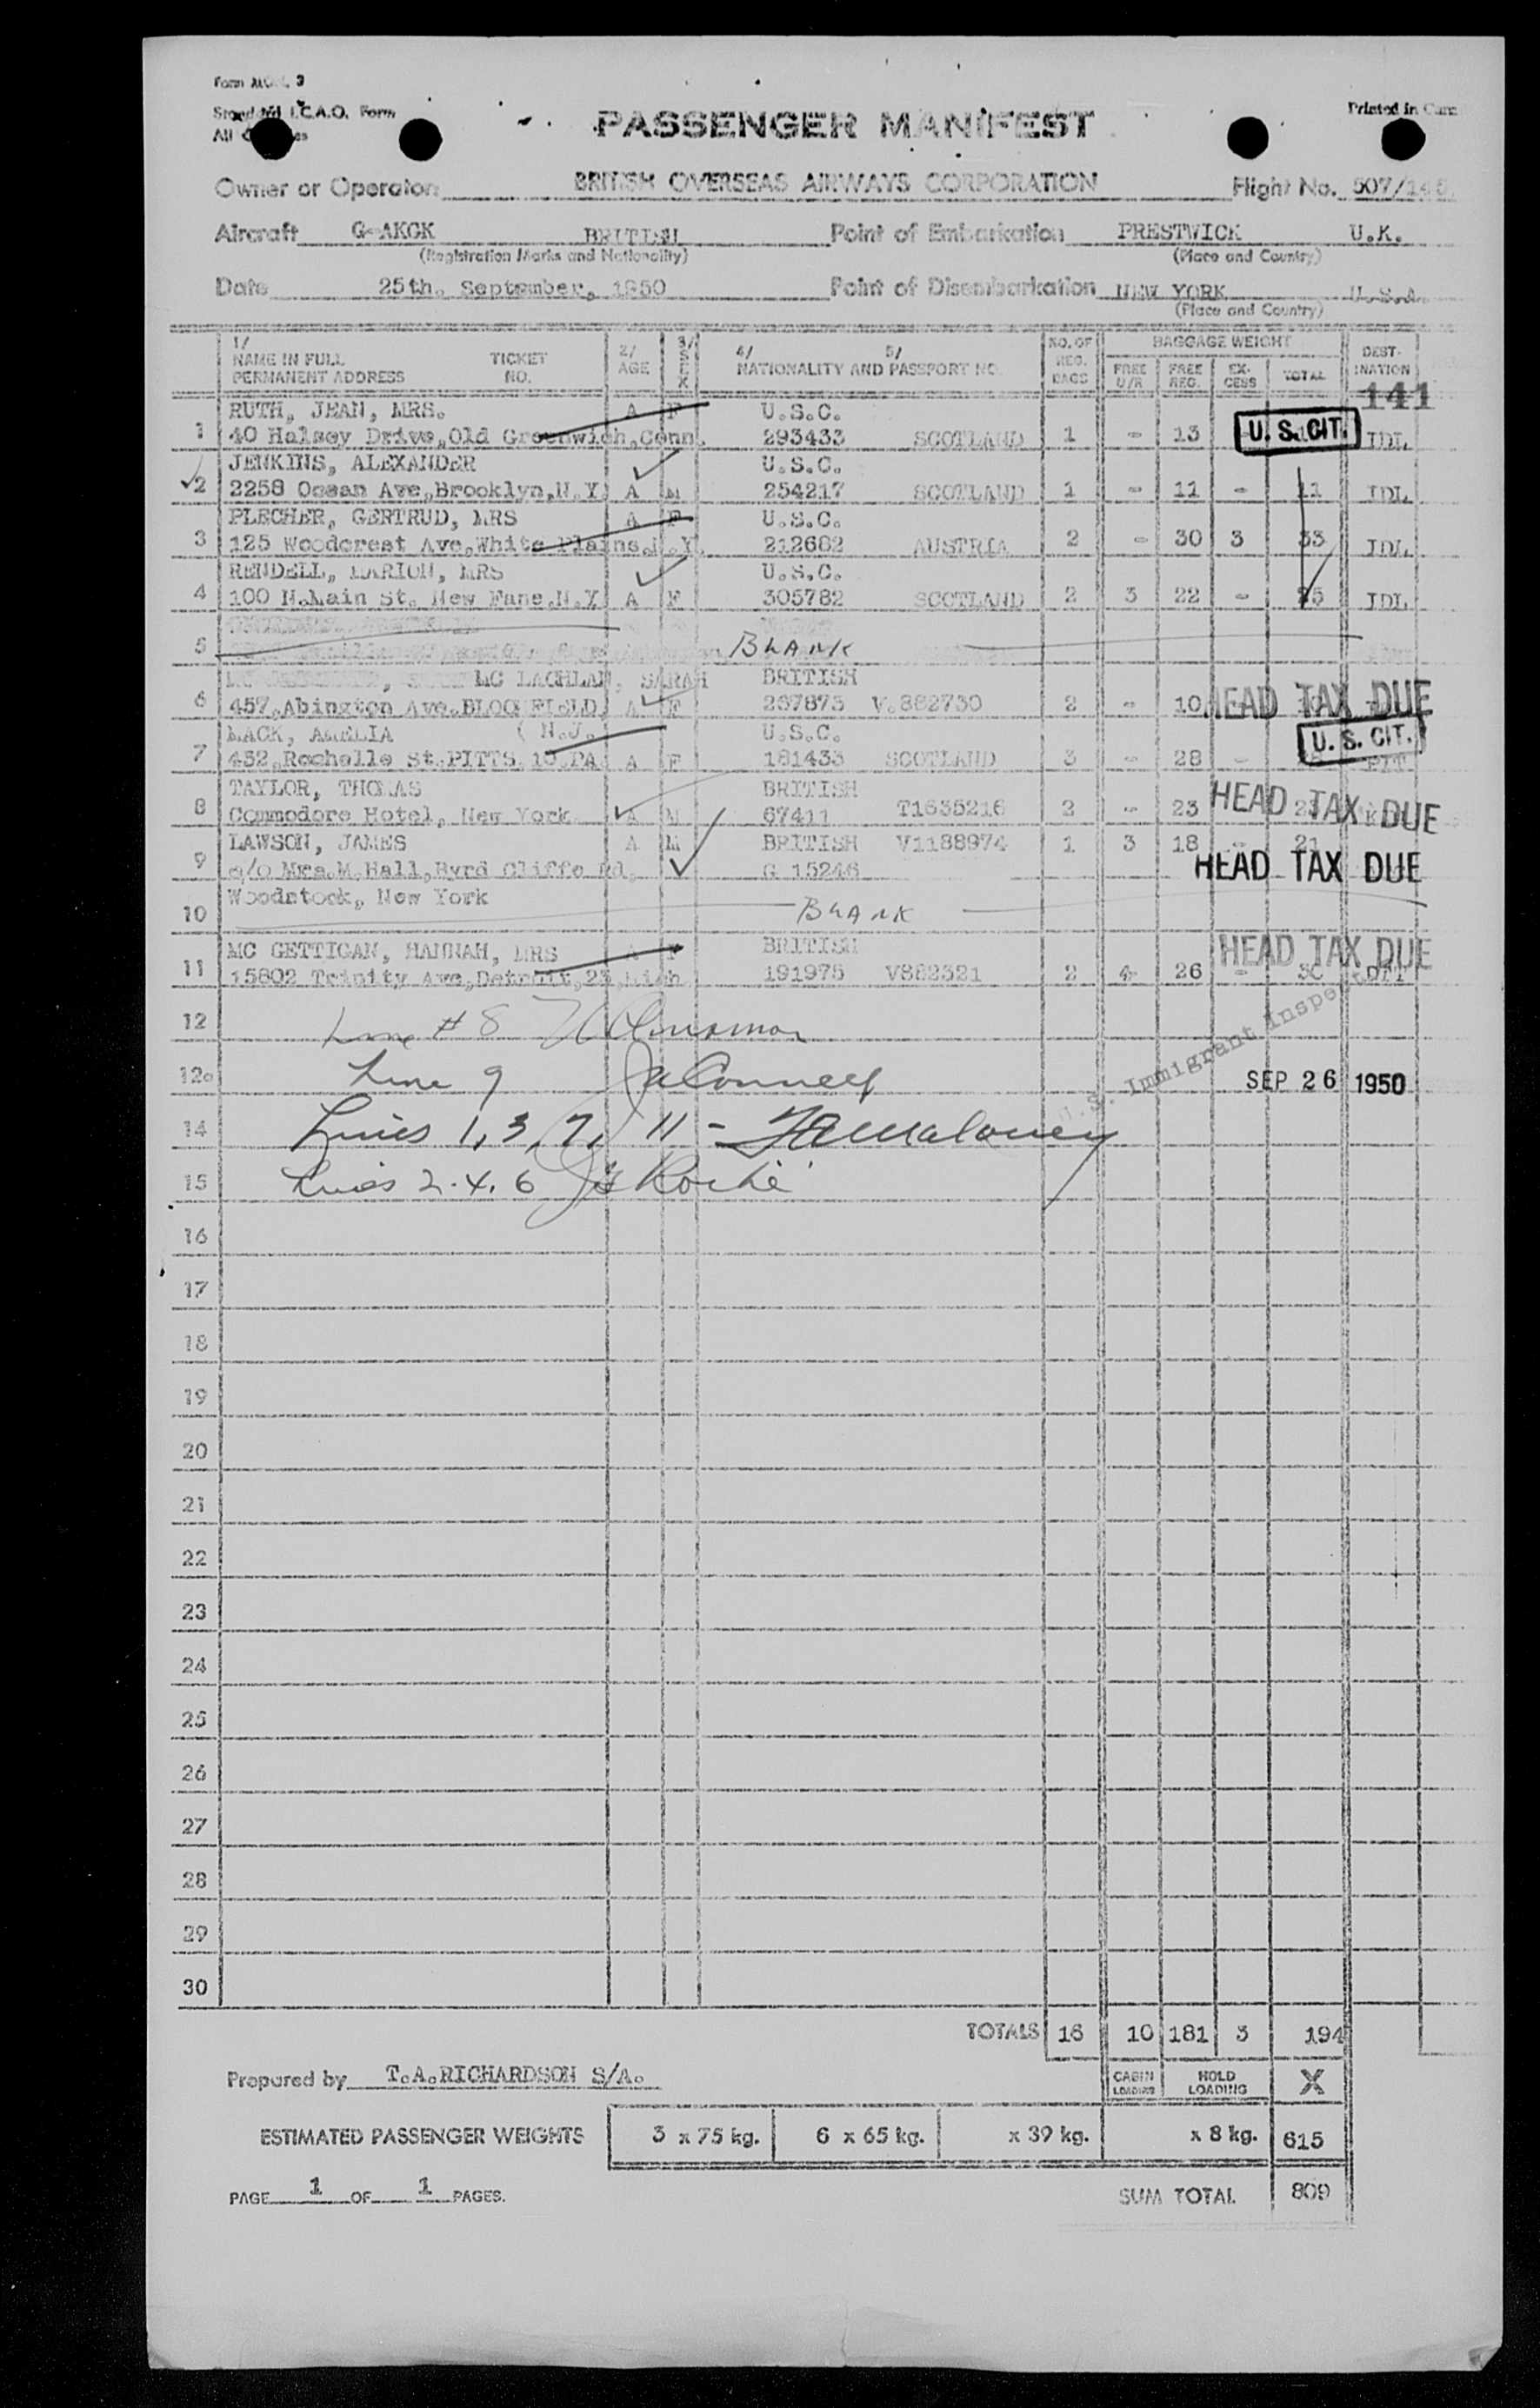 Form 3
Standard I.C.A.O. Form
All
PASSENGER MANIFEST
Printed in
Owner or Operator BRITISH OVERSEAS AIRWAYS CORPORATION Flight No. 507/
Aircraft G-AKGK BRITISH Point of Embarkation PRESTWICK U.K.
(Registration Marks and Nationality) (Place and Country)
Date 25th. September, 1950 Point of Disembarkation NEW YORK U.S.A.
(Place and Country)
1/ NAME IN FULL PERMANENT ADDRESS TICKET NO. 2/ AGE 3/ SEX 4/ 5/ NATIONALITY AND PASSPORT NO. NO. OF REG. BAGS BAGGAGE WEIGHT FREE U/R FREE REG. EX-CESS TOTAL DEST-INATION
141
RUTH, JEAN, MRS. A F U.S.C.
1 40 Halsey Drive, Old Greenwich, Conn. 293433 SCOTLAND 1 - 13 U. S. CIT. IDL
JENKINS, ALEXANDER U.S.C.
2 2258 Ocean Ave, Brooklyn, N.Y. A M 254217 SCOTLAND 1 - 11 - 11 IDL
PLECHER, GERTRUD, MRS A F U.S.C.
3 125 Woodcrest Ave, White Plains, N.Y. 212682 AUSTRIA 2 - 30 3 33 IDL
RENDELL, MARION, MRS U.S.C.
4 100 N.Main St. New Fane, N.Y. A F 305782 SCOTLAND 2 3 22 - 25 IDL
5 BLANK
MC LACHLAN, SARAH BRITISH
6 457, Abington Ave. BLOOMFIELD, A F 267873 V.882730 2 - 10 HEAD TAX DUE
MACK, AMELIA ( N.J. U.S.C.
7 452, Rochelle St. PITTS. 10, PA. A F 181433 SCOTLAND 3 - 28 - U. S. CIT. PIT
TAYLOR, THOMAS BRITISH
8 Commodore Hotel, New York A M 67411 T1635216 2 - 23 HEAD TAX DUE
LAWSON, JAMES A M BRITISH V1188974 1 3 18 - 21
9 c/o Mrs.M.Hall, Byrd Cliffe Rd, G 15246 HEAD TAX DUE
Woodstock, New York
10 BLANK
MC GETTIGAN, HANNAH, MRS A F BRITISH HEAD TAX DUE
11 15802 Trinity Ave, Detroit, 23, Mich. 191975 V882321 2 4 26 - 30 DTT
12 Line # 8
U.S. Immigrant Inspector
Line 9 JaConnell SEP 26 1950
14 Lines 1, 3, 7, 11 - Maloney
15 Lines 2. 4. 6 Roche
16
17
18
19
20
21
22
23
24
25
26
27
28
29
30
TOTALS 16 10 181 3 194
Prepared by T.A.RICHARDSON S/A. CABIN LOADING HOLD LOADING X
ESTIMATED PASSENGER WEIGHTS 3 x 75 kg. 6 x 65 kg. x 39 kg. x 8 kg. 615
PAGE 1 OF 1 PAGES. SUM TOTAL 809